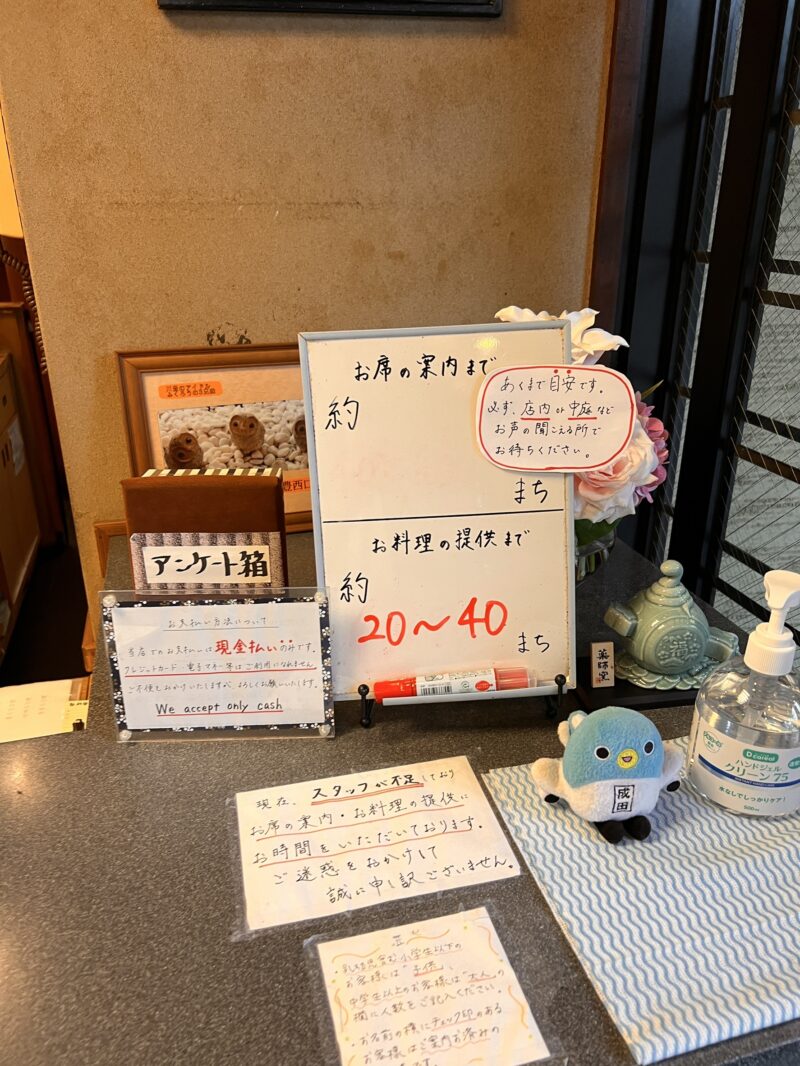 お席の案内まで
約
まち
あくまで目安です。
必ず、店内or中庭など
お声の聞こえる所で
お待ちください。
お料理の提供まで
約
20〜40
まち
アンケート箱
お支払い方法について
当店でのお支払いは現金払いのみです。
クレジットカード・電子マネー等はご利用になれません。
ご不便しおかけいたしますが よろしくお願いいたします。
We accept only cash
薬師窯
成田
ハンドジェル
クリーン75
水なしでしっかりケア!
500ml
現在、スタッフが不足しており
お席の案内・お料理の提供に
お時間をいただいております。
ご迷惑をおかけして
誠に申し訳ございません。
・乳幼児含む小学生以下の
お客様は"子供"、
中学生以上のお客様は"大人"の
欄に人数をご記入ください。
・お名前の横にチェック印のある
お客様はご案内お済みの